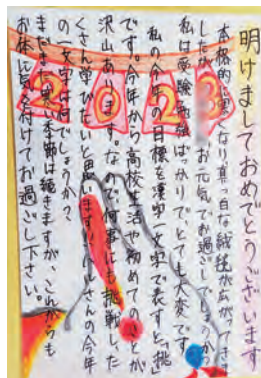 明けましておめでとうございます
本格的に寒くなり、真っ白な絨毯が広がってきま
したが、お元気でお過ごしでしょうか。
私は受験勉強ばっかりでとても大変です。
私の今年の目標を漢字一文字で表すと、「挑」
です。今年から高校生活や初めてのことが
沢山あります。なので、何事にも挑戦した
くさん学びたいと思います!!さんの今年
の一文字は何でしょうか?
まだまだ寒い季節は続きますが、これからも
お体に気を付けてお過ごし下さい。
2023